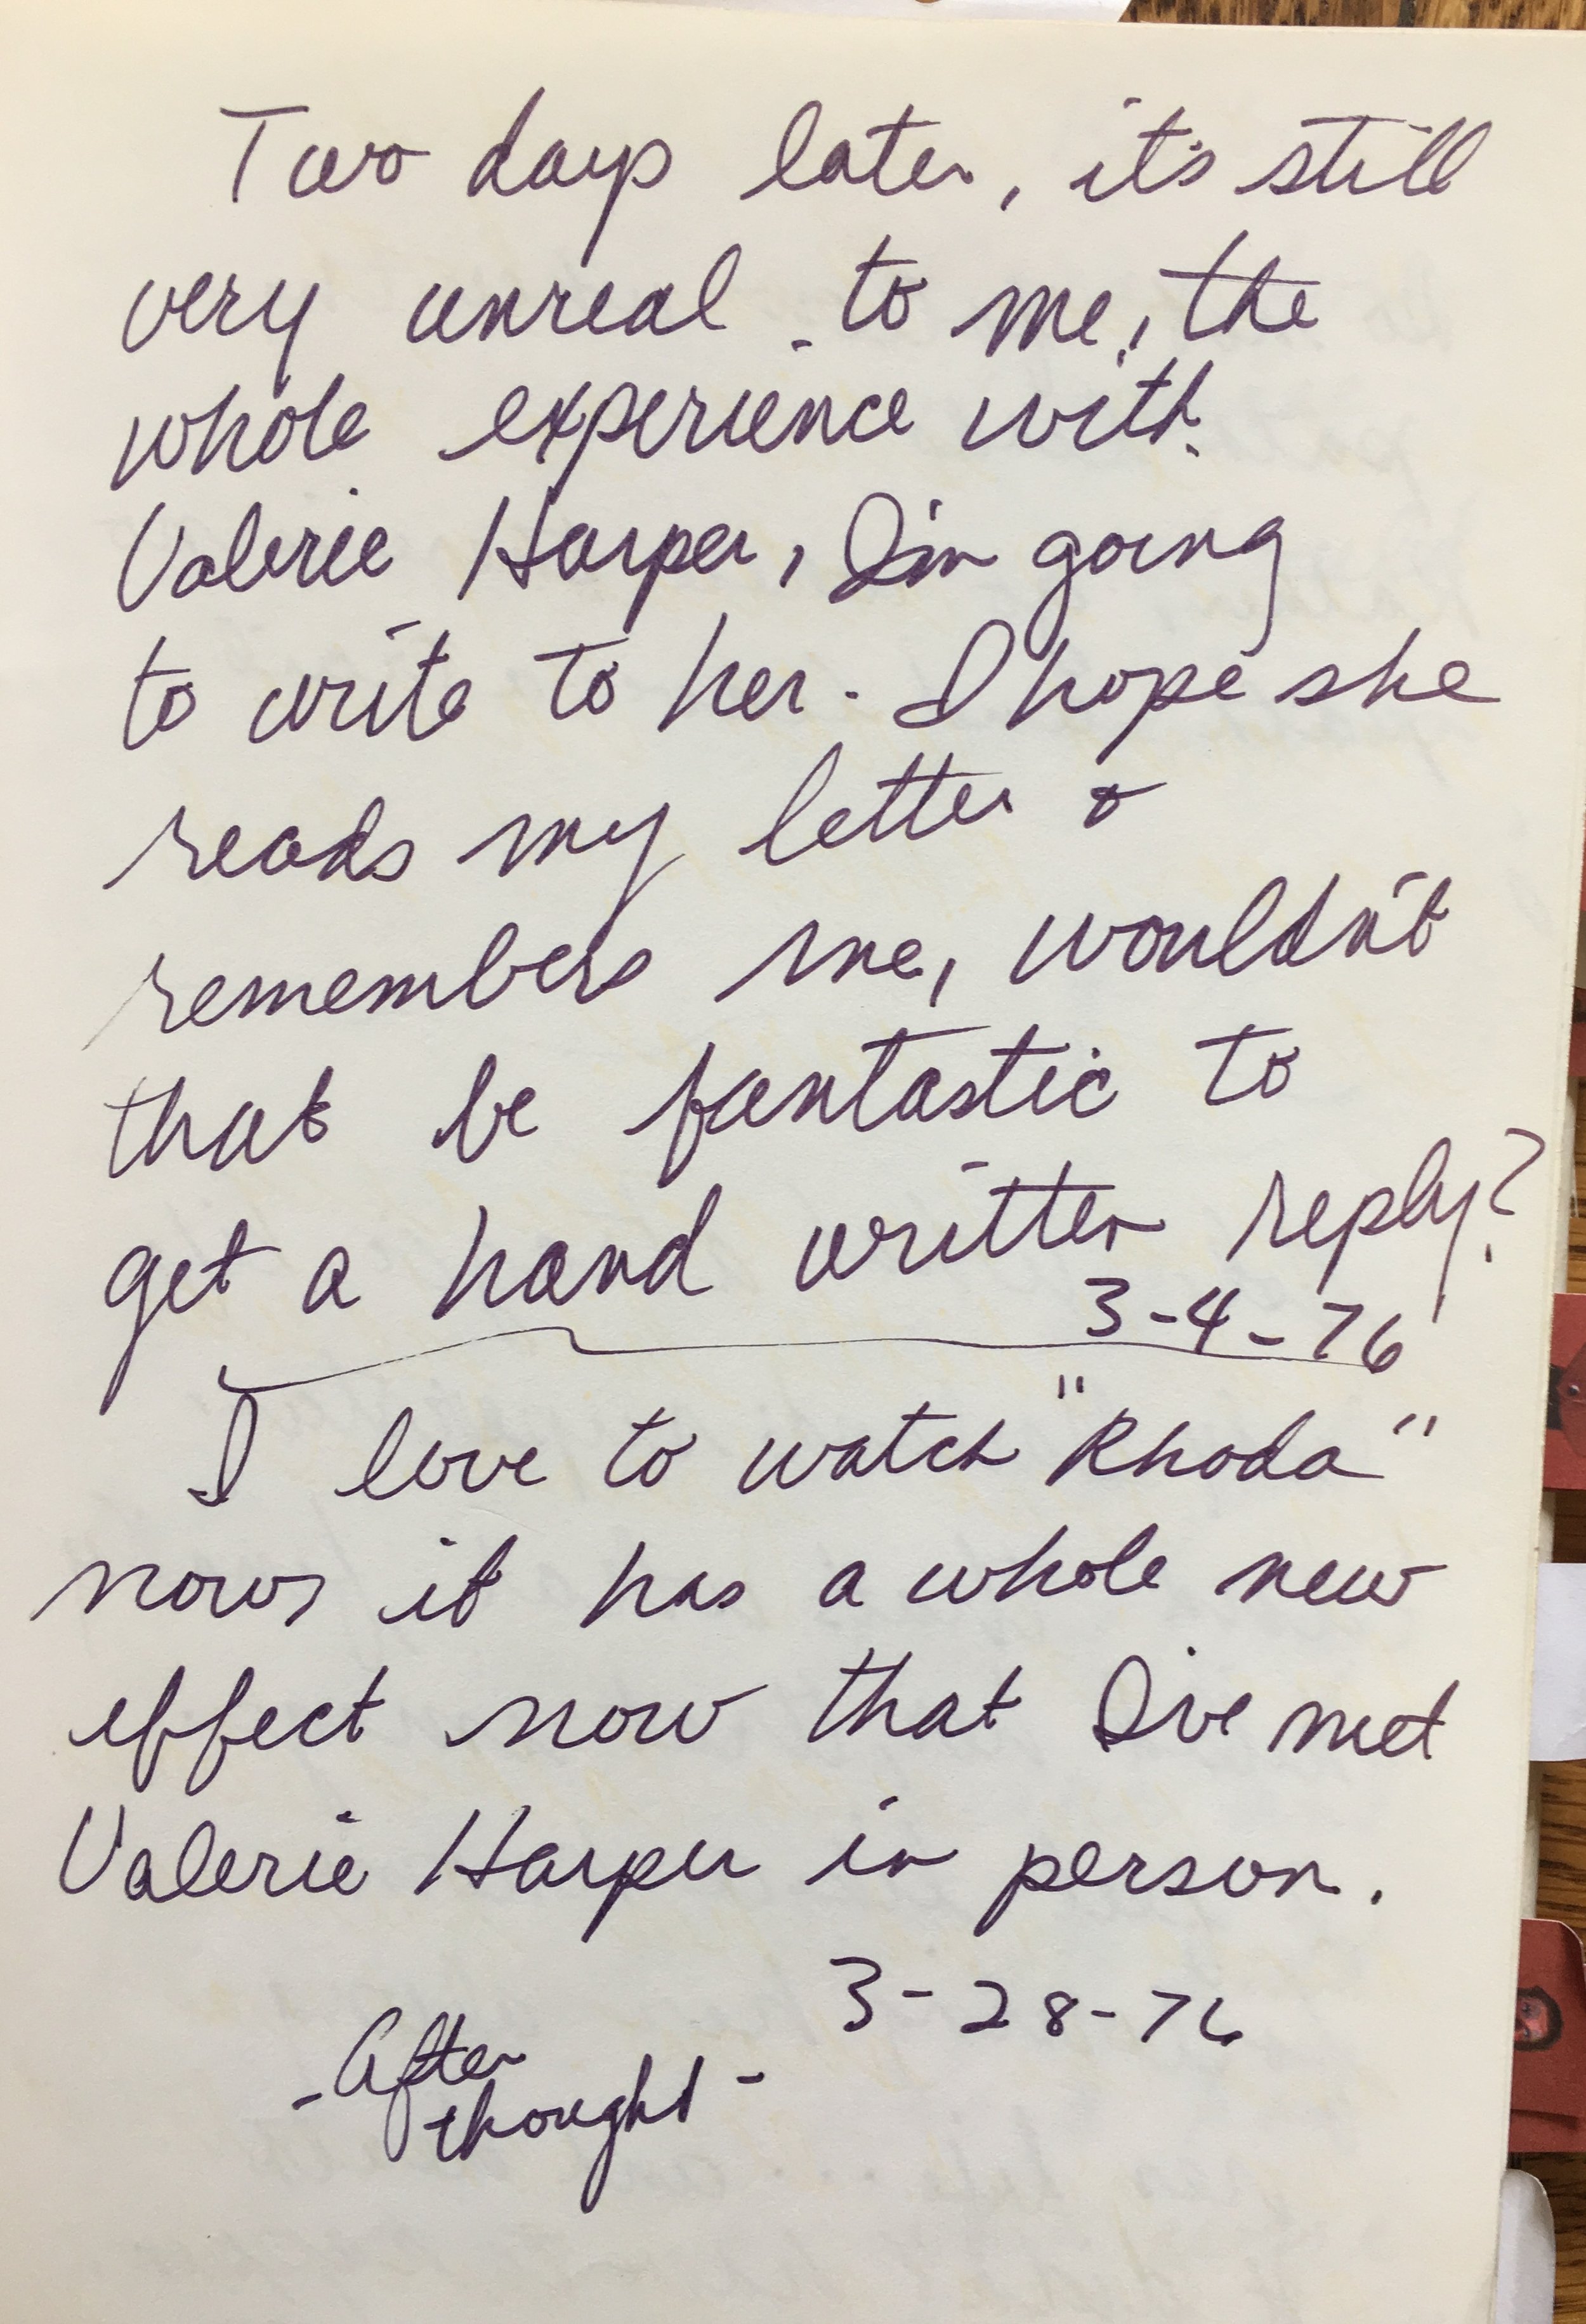 Two days later, it's still
very unreal to me, the
whole experience with
Valerie Harper, I'm going
to write to her. I hope she
reads my letter &
remembers me, wouldn't
that be fantastic to
get a hand written reply?
3-4-76
I love to watch "Rhoda"
now, it has a whole new
effect now that I've met
Valerie Harper in person.
3-28-76
-After
thought-